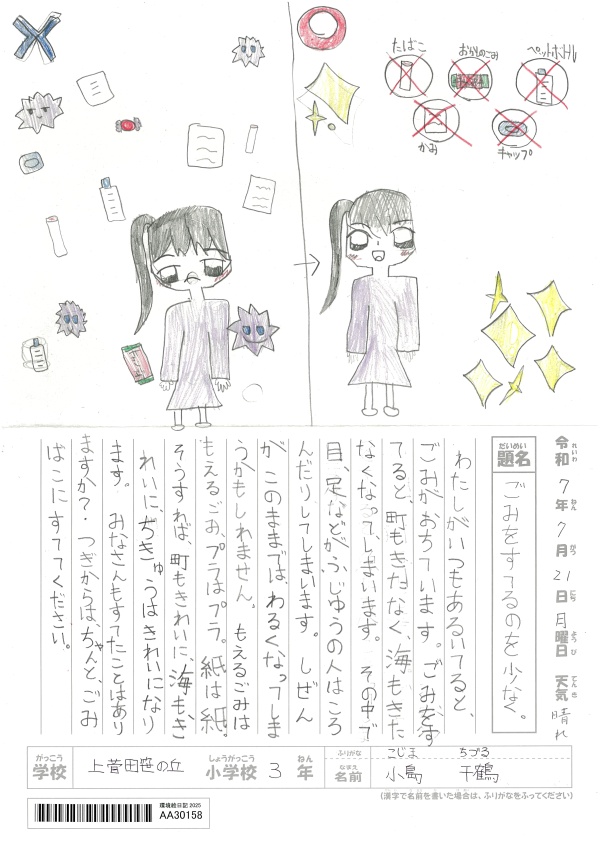 たばこ
おかしのごみ
ペットボトル
かみ
キャップ
令和7年7月21日月曜日 天気 晴れ
れいわ ねん がつ にち ようび てんき
だいめい
題名
ごみをすてるのを少なく。
わたしがいつもあるいてると、
ごみがおちています。ごみをす
てると、町もきたなく、海もきた
なくなってしまいます。その中で
目、足などがふじゆうの人はころ
んだりしてしまいます。しぜん
がこのままでは、わるくなってしま
うかもしれません。もえるごみは
もえるごみ、プラはプラ。紙は紙。
そうすれば、町もきれいに、海も、き
れいに、ぢきゅうはきれいになり
ます。みなさんもすてたことはあり
ますか?・つぎからは、ちゃんと、ごみ
ばこにすててください。
がっこう
学校
上菅田笹の丘
しょうがっこう
小学校
3
ねん
年
ふりがな
こじま ちづる
なまえ
名前
小島 千鶴
(漢字で名前を書いた場合は、ふりがなをふってください)
環境絵日記 2025
AA30158